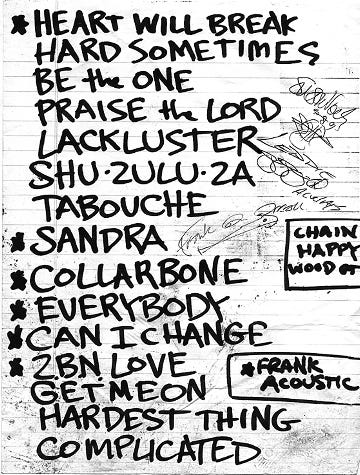 * HEART WILL BREAK
HARD SOMETIMES
BE the ONE
PRAISE the LORD
LACKLUSTER
SHU·ZULU·ZA
TABOUCHE
* SANDRA
* COLLARBONE
* EVERYBODY
* CAN I CHANGE
* 2BN. LOVE
GET ME ON
HARDEST THING
COMPLICATED
CHAIN
HAPPY
WOOD OT
* FRANK
ACOUSTIC
Frank